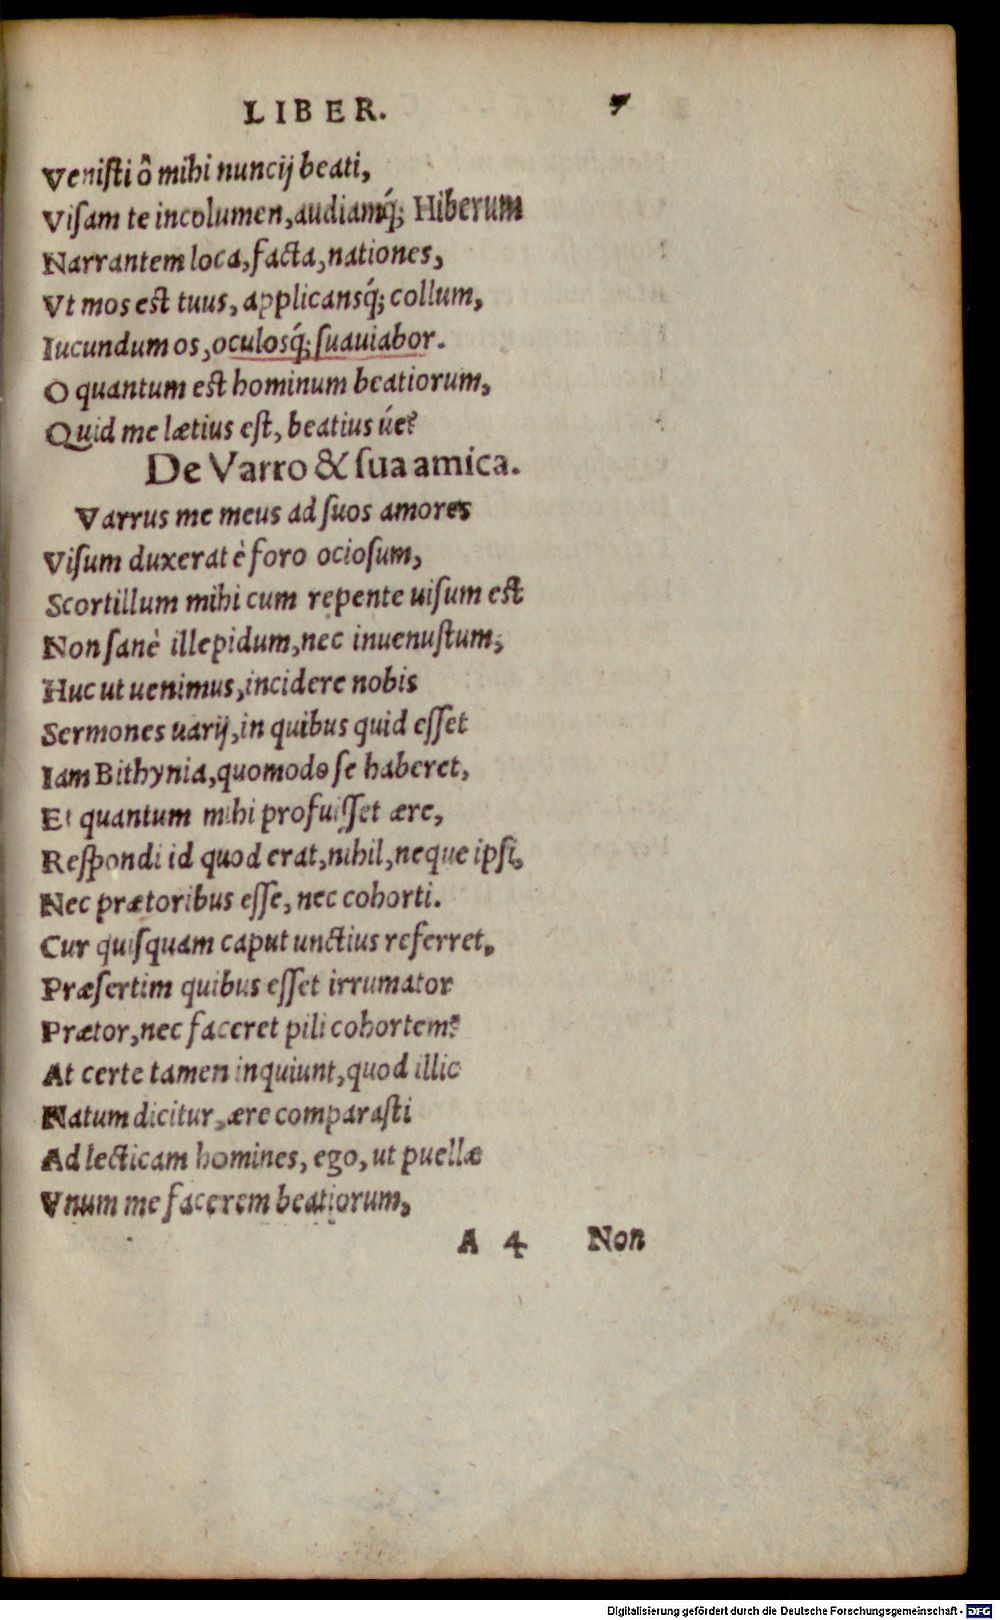 LIBER. 7
Veniſti ô mihi nuncij beati,
Viſam te incolumen, audiamq́; Hiberum
Narrantem loca, facta, nationes,
Vt mos est tuus, applicansq́; collum,
Iucundum os, oculosq́; ſuauiabor.
O quantum est hominum beatiorum,
Quid me lætius eſt, beatius úe?
De Varro & ſua amica.
Varrus me meus ad ſuos amores
Viſum duxerat è foro ocioſum,
Scortillum mihi cum repente uiſum est
Non ſanè illepidum, nec inuenuſtum,
Huc ut uenimus, incidere nobis
Sermones uarij, in quibus quid eſſet
Iam Bithynia, quomodo ſe haberet,
Et quantum mihi profuiſſet ære,
Reſpondi id quod erat, nihil, neque ipſi,
Nec prætoribus eſſe, nec cohorti.
Cur quiſquam caput unctius referret,
Præſertim quibus eſſet irrumator
Prætor, nec faceret pili cohortem?
At certe tamen inquiunt, quod illic
Natum dicitur, ære comparaſti
Ad lecticam homines, ego, ut puellæ
Vnum me facerem beatiorum,
A 4 Non
Digitalisierung gefördert durch die Deutsche Forschungsgemeinschaft - DFG